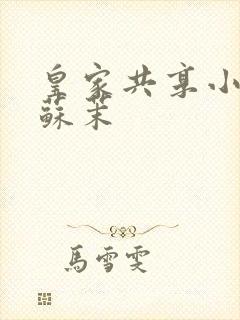 皇家共享小
蘇茉
馬雪雯